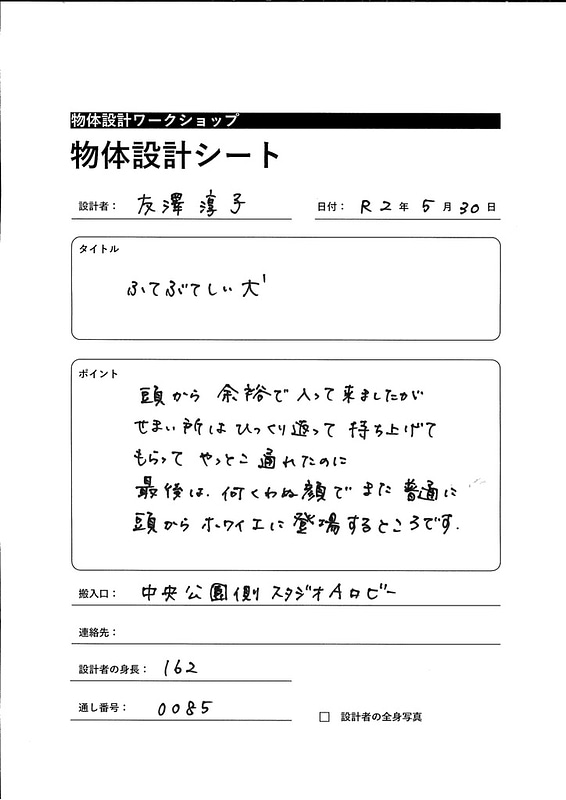 物体設計ワークショップ
物体設計シート
設計者： 友澤 淳子
日付： R2年 5月30日
タイトル
ふてぶてしい犬
ポイント
頭から 余裕で 入って来ましたが
せまい所は ひっくり返って 持ち上げて
もらって やっとこ 通れたのに
最後は、何くわぬ顔で また 普通に
頭から ホワイエに 登場するところです.
搬入口： 中央公園側 スタジオAロビー
連絡先：
設計者の身長： 162
通し番号： 0085
□ 設計者の全身写真